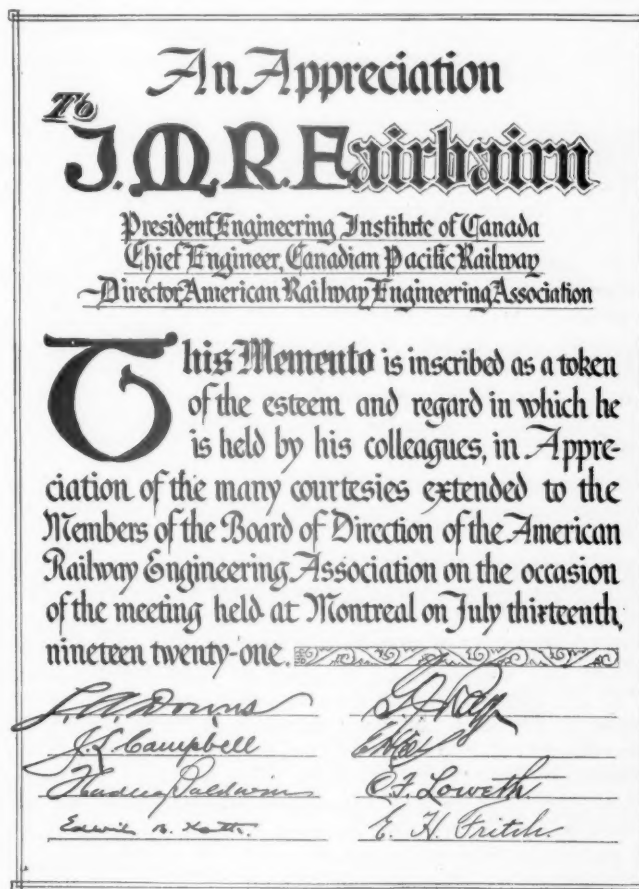 An Appreciation
To
J.M.R. Fairbairn
President Engineering Institute of Canada
Chief Engineer, Canadian Pacific Railway
~Director, American Railway Engineering Association
This Memento is inscribed as a token
of the esteem and regard in which he
is held by his colleagues, in Appre-
ciation of the many courtesies extended to the
Members of the Board of Direction of the American
Railway Engineering Association on the occasion
of the meeting held at Montreal on July thirteenth,
nineteen twenty-one.
L.A. Downs
J.L. Campbell
Baldwin
C.F. Loweth
E. H. Fritch.